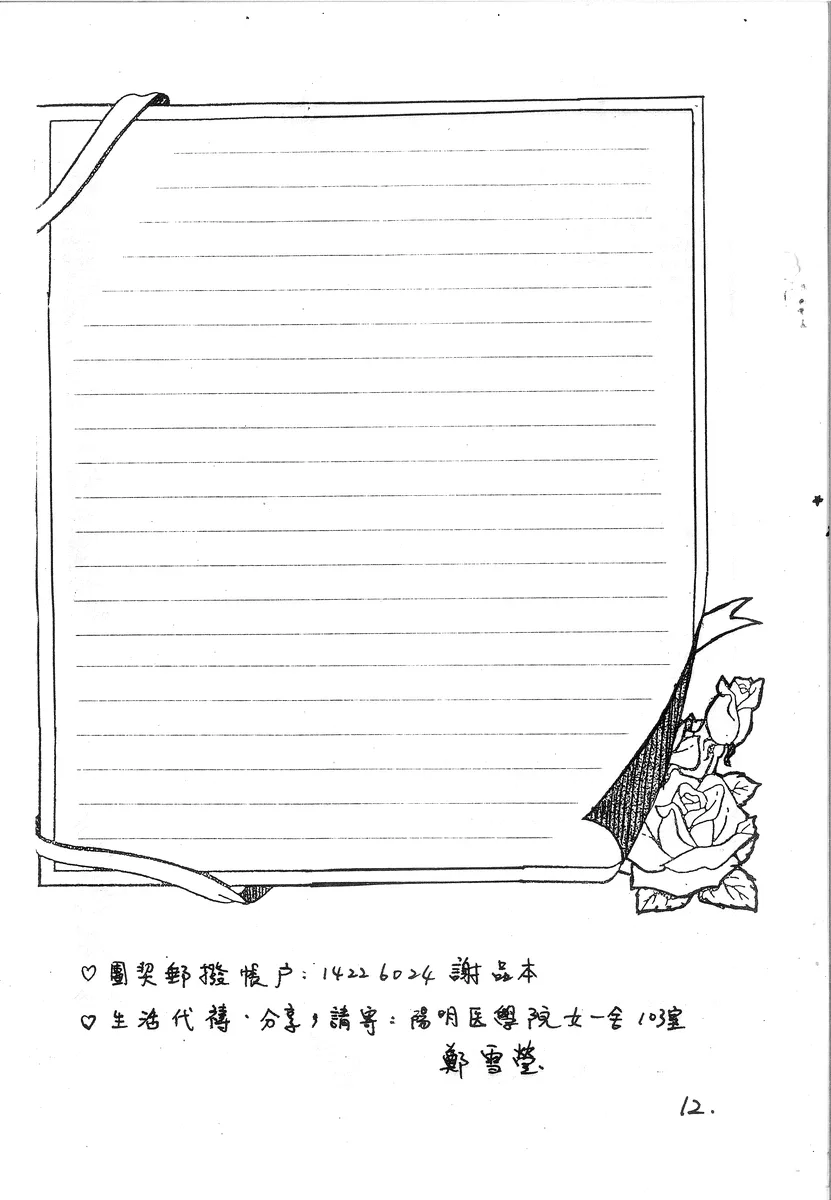 ♡ 團契郵撥帳户：14226024 謝品本
♡ 生活代禱．分享，請寄：陽明医學院女一舍103室
鄭雪瑩.
12.